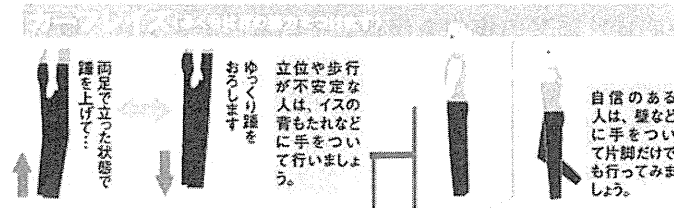 カーフレイズ
両足で立った状態で
踵を上げて…
ゆっくり踵を
おろします
立位や歩行
が不安定な
人は、イスの
背もたれなど
に手をつい
て行いましょ
う。
自信のある
人は、壁など
に手をつい
て片脚だけで
も行ってみま
しょう。